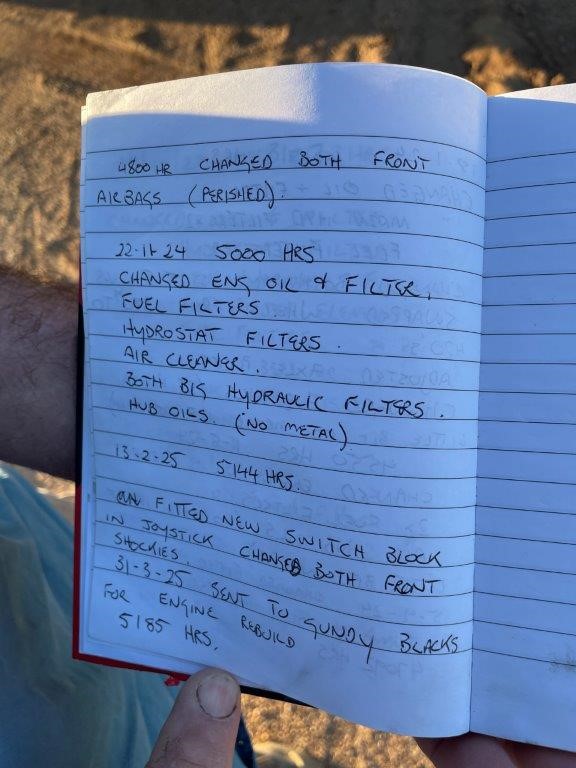 4800 HR CHANGED BOTH FRONT
AIRBAGS (PERISHED).
22-11-24 5000 HRS
CHANGED ENG OIL & FILTER,
FUEL FILTERS.
HYDROSTAT FILTERS.
AIR CLEANER.
BOTH BIG HYDRAULIC FILTERS.
HUB OILS. (NO METAL)
13-2-25 5144 HRS.
FITTED NEW SWITCH BLOCK
IN JOYSTICK CHANGED BOTH FRONT
SHOCKIES.
31-3-25 SENT TO GUNDY BLACKS
FOR ENGINE REBUILD
5185 HRS.